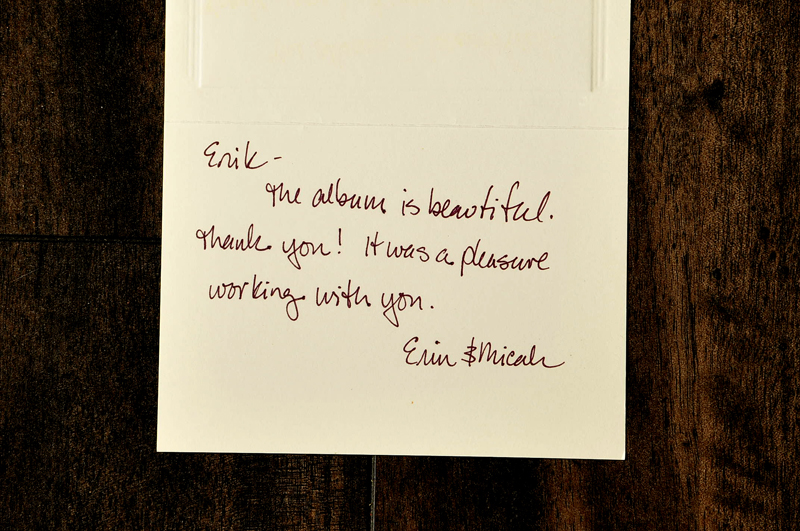 Erik-
The album is beautiful.
Thank you! It was a pleasure
working with you.
Erin & Micah